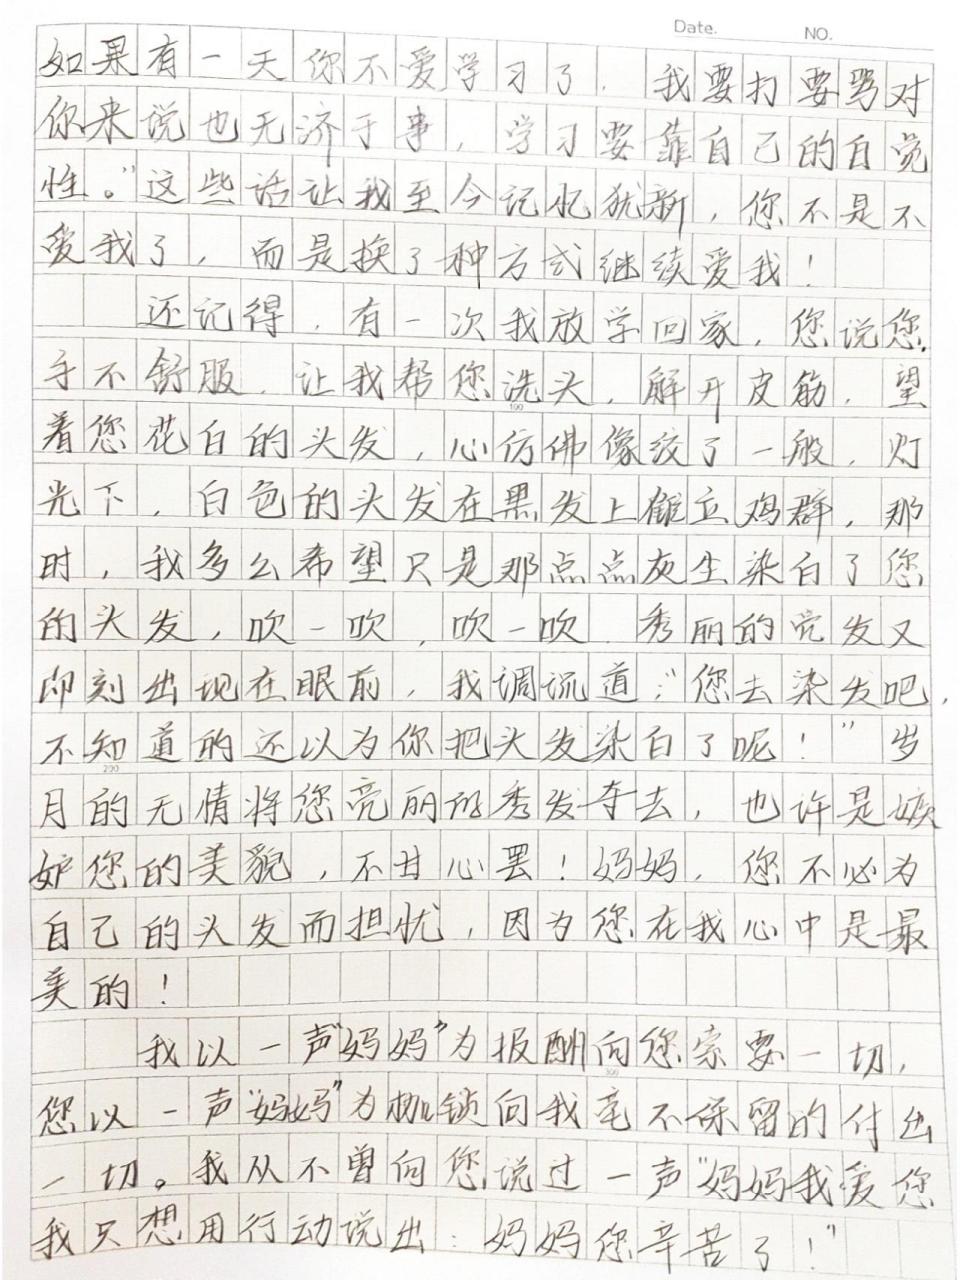 Date. NO.
如果有一天你不爱学习了，我要打要骂对
你来说也无济于事，学习要靠自己的自觉
性。”这些话让我至今记忆犹新，您不是不
爱我了，而是换了种方式继续爱我！
还记得，有一次我放学回家，您说您
手不舒服，让我帮您洗头，解开皮筋，望
100
着您花白的头发，心仿佛像绞了一般，灯
光下，白色的头发在黑发上鹤立鸡群，那
时，我多么希望只是那点点灰尘染白了您
的头发，吹一吹，吹一吹，秀丽的亮发又
即刻出现在眼前，我调侃道：“您去染发吧，
不知道的还以为你把头发染白了呢！”岁
200
月的无情将您亮丽的秀发夺去，也许是嫉
妒您的美貌，不甘心罢！妈妈，您不必为
自己的头发而担忧，因为您在我心中是最
美的！
我以一声“妈妈”为报酬向您索要一切，
300
您以一声“妈妈”为枷锁向我毫不保留的付出
一切。我从不曾向您说过一声“妈妈我爱您
我只想用行动说出：妈妈您辛苦了！”